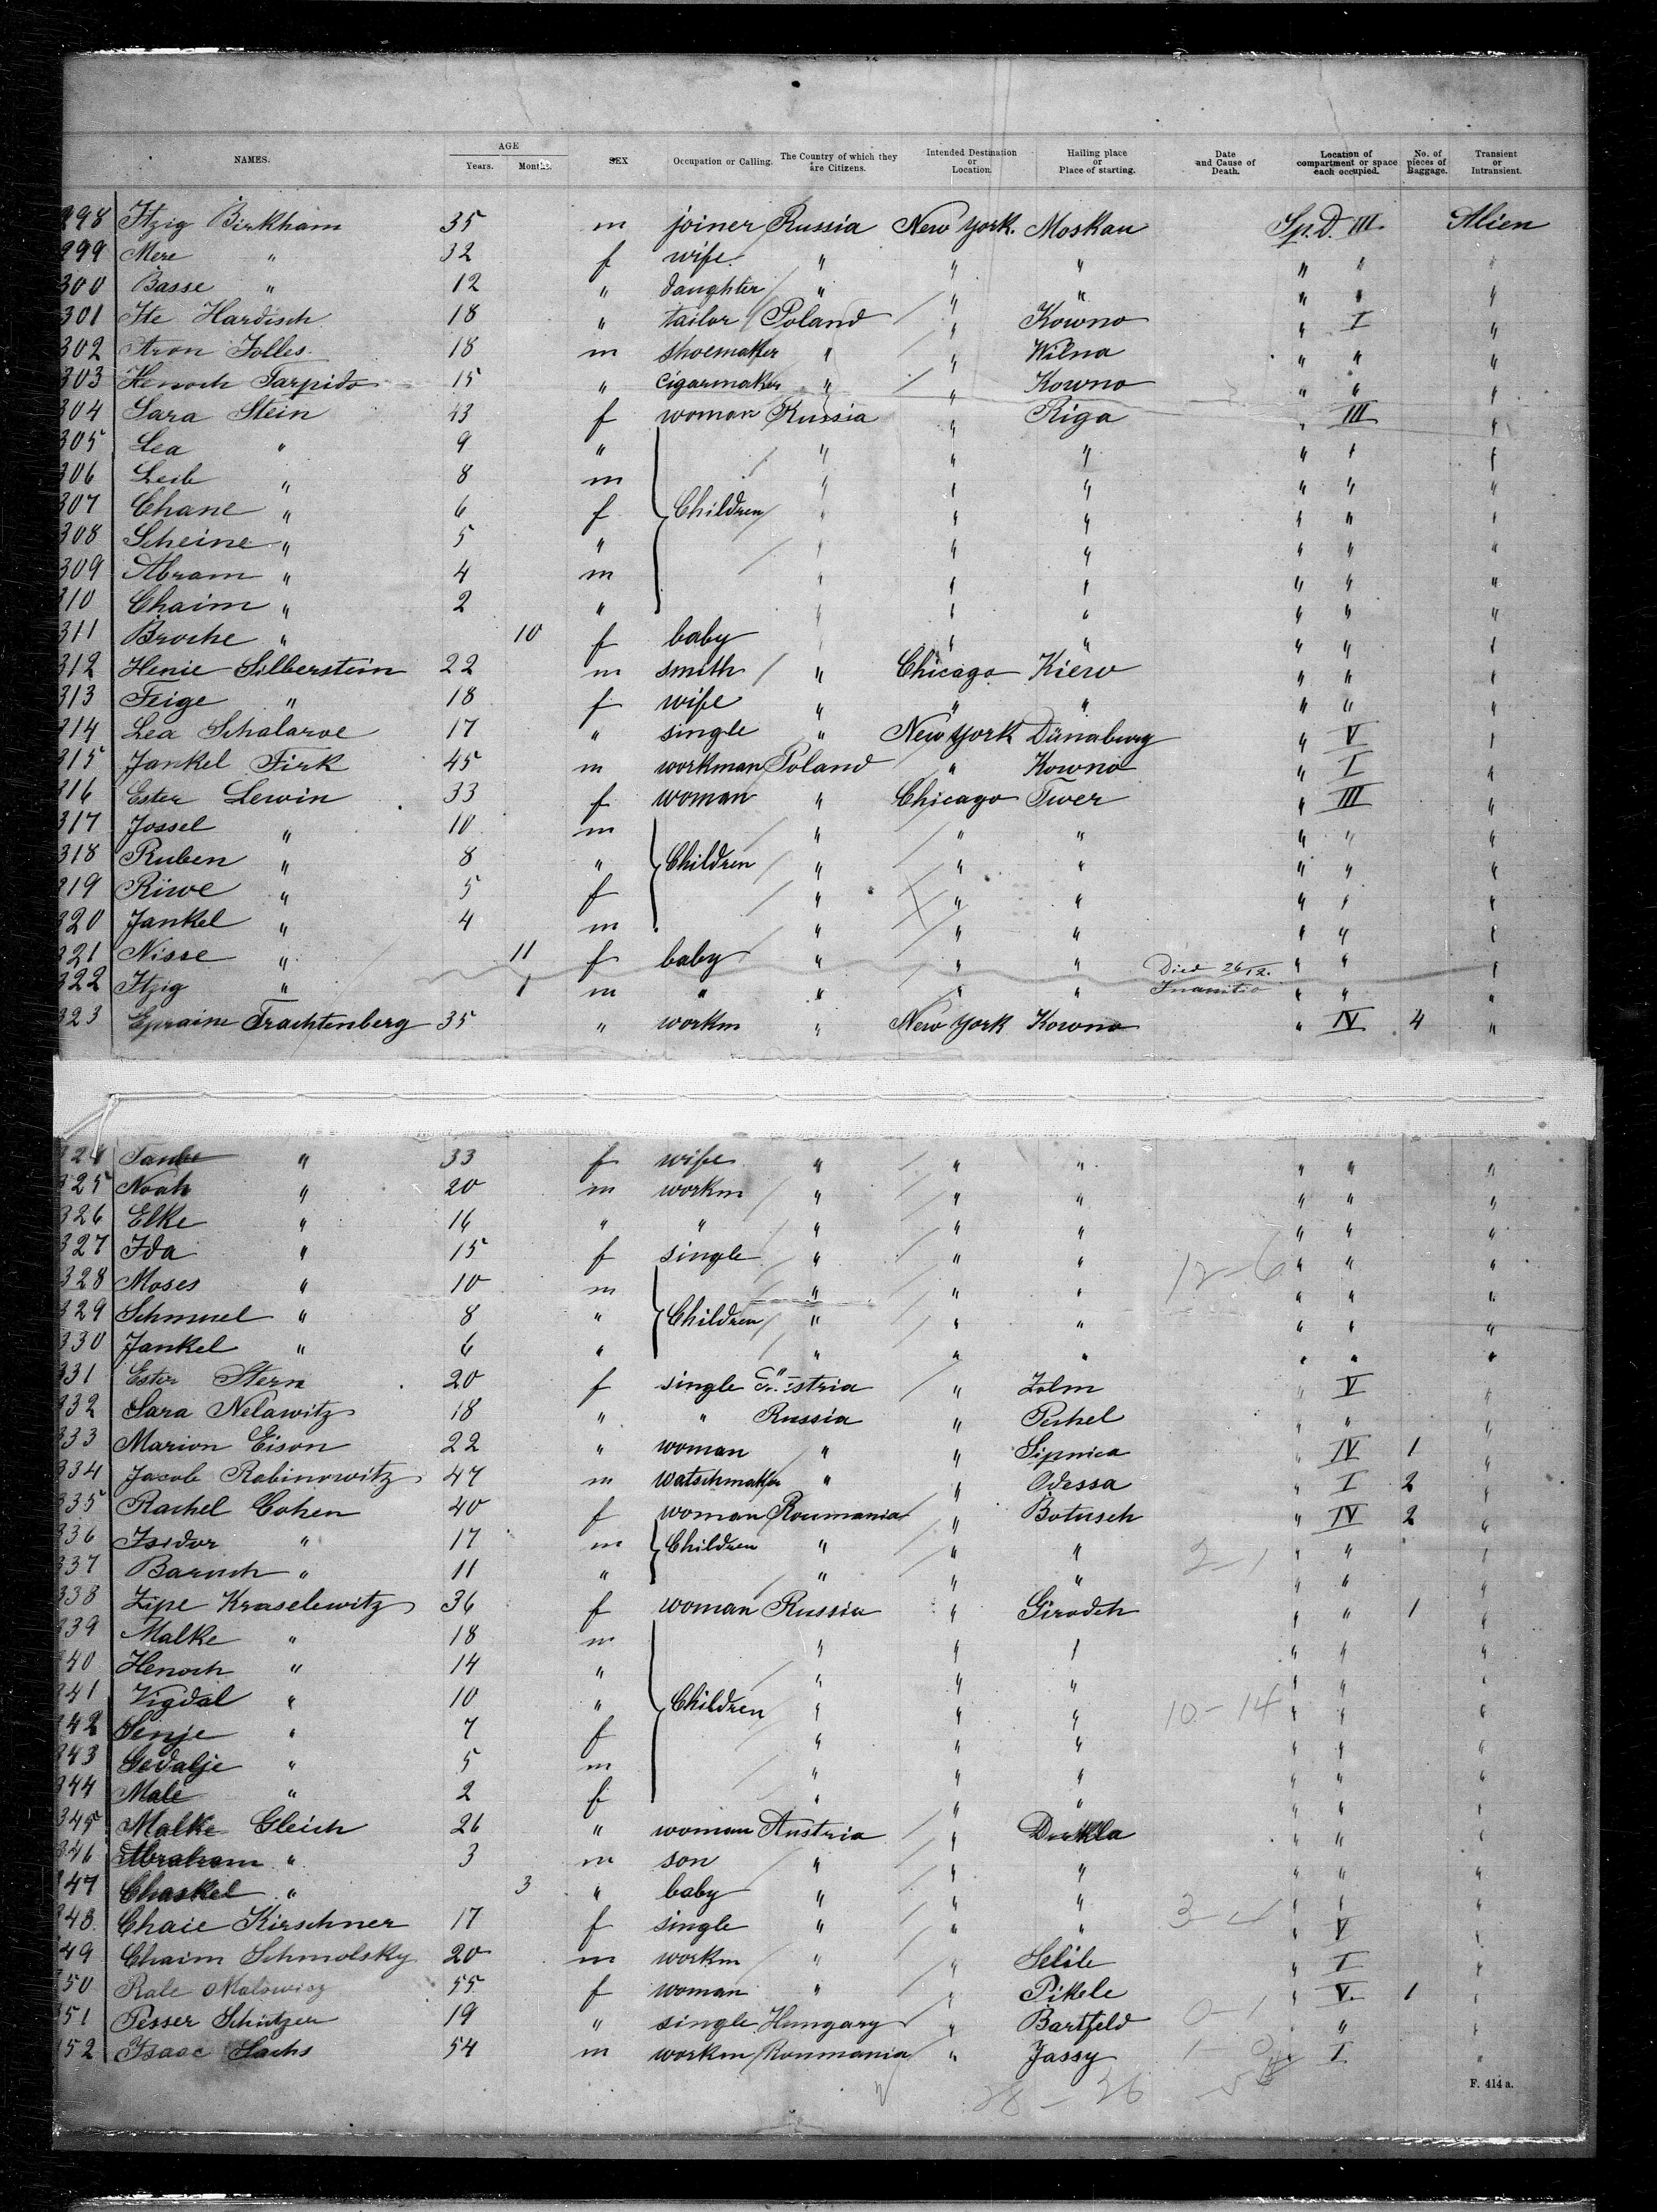 NAMES. AGE Years. Months. SEX Occupation or Calling. The Country of which they are Citizens. Intended Destination or Location. Hailing place or Place of starting. Date and Cause of Death. Location of compartment or space each occupied. No. of pieces of Baggage. Transient or Intransient.
298 Itzig Birkham 35 m joiner Russia New York. Moskau Sp.D. III. Alien
299 Mere " 32 f wife " " " " " "
300 Basse " 12 " daughter " " " " " "
301 Ite Hardisch 18 " tailor Poland " Kowno " I "
302 Aron Jolles 18 m shoemaker " " Wilna " " "
303 Henoch Tarpido 15 " cigarmaker " " Kowno " " "
304 Sara Stein 43 f woman Russia " Riga " III "
305 Lea " 9 " " " " " " "
306 Leib " 8 m " " " " " "
307 Chane " 6 f Children " " " " " "
308 Scheine " 5 " " " " " " "
309 Abram " 4 m " " " " " "
310 Chaim " 2 " " " " " " "
311 Broche " 10 f baby " " " " " "
312 Henie Silberstein 22 m smith " Chicago Kiew " " "
313 Feige " 18 f wife " " " " " "
314 Lea Schalarve 17 " single " New York Dünaburg " V "
315 Jankel Firk 45 m workman Poland " Kowno " I "
316 Ester Lewin 33 f woman " Chicago Twer " III "
317 Jossel " 10 m " " " " " "
318 Ruben " 8 " Children " " " " " "
319 Riwe " 5 f " " " " " "
320 Jankel " 4 m " " " " " "
321 Nisse " 11 f baby " " " " " "
322 Itzig " 1 m " " " " Died 26/12. Inanitio " " "
323 Epraim Trachtenberg 35 " workm " New York Kowno " IV 4 "
324 Taube " 33 f wife " " " " " "
325 Noah " 20 m workm " " " " " "
326 Elke " 16 " " " " " " " "
327 Ida " 15 f single " " " " " "
328 Moses " 10 m " " " 12-6 " " "
329 Schmuel " 8 " Children " " " " " "
330 Jankel " 6 " " " " " " "
331 Ester Stern 20 f single " " V "
332 Sara Nelawitz 18 " " Russia " Peshel " " "
333 Marion Eison 22 " woman " " Sipnica " IV 1 "
334 Jacob Rabinowitz 47 m watschmaker " " Odessa " I 2 "
335 Rachel Cohen 40 f woman Roumania " Botusch " IV 2 "
336 Isidor " 17 m Children " " " 2-1 " " "
337 Baruch " 11 " " " " " " "
338 Zipe Kraselewitz 36 f woman Russia " Girodch " " 1 "
339 Malke " 18 m " " " " " "
340 Henoch " 14 " " " " " " "
341 Vigdal " 10 " Children " " " 10-14 " " "
342 Senje " 7 f " " " " " "
343 Gedalje " 5 m " " " " " "
344 Male " 2 f " " " " " "
345 Malke Gleich 26 " woman Austria " Dukla " " "
346 Abraham " 3 m son " " " " " "
347 Chaskel " 3 " baby " " " " " "
348 Chaie Kirschner 17 f single " " " 3-4 " V "
349 Chaim Schmolsky 20 m workm " " Selib " I "
350 Rale Malowicz 55 f woman " " Pikele " V. 1 "
351 Pesser Schützer 19 " single Hungary " Bartfeld 0-1 " " "
352 Isaac Sachs 54 m workm Roumania " Jassy " I "
F. 414 a.
28-26